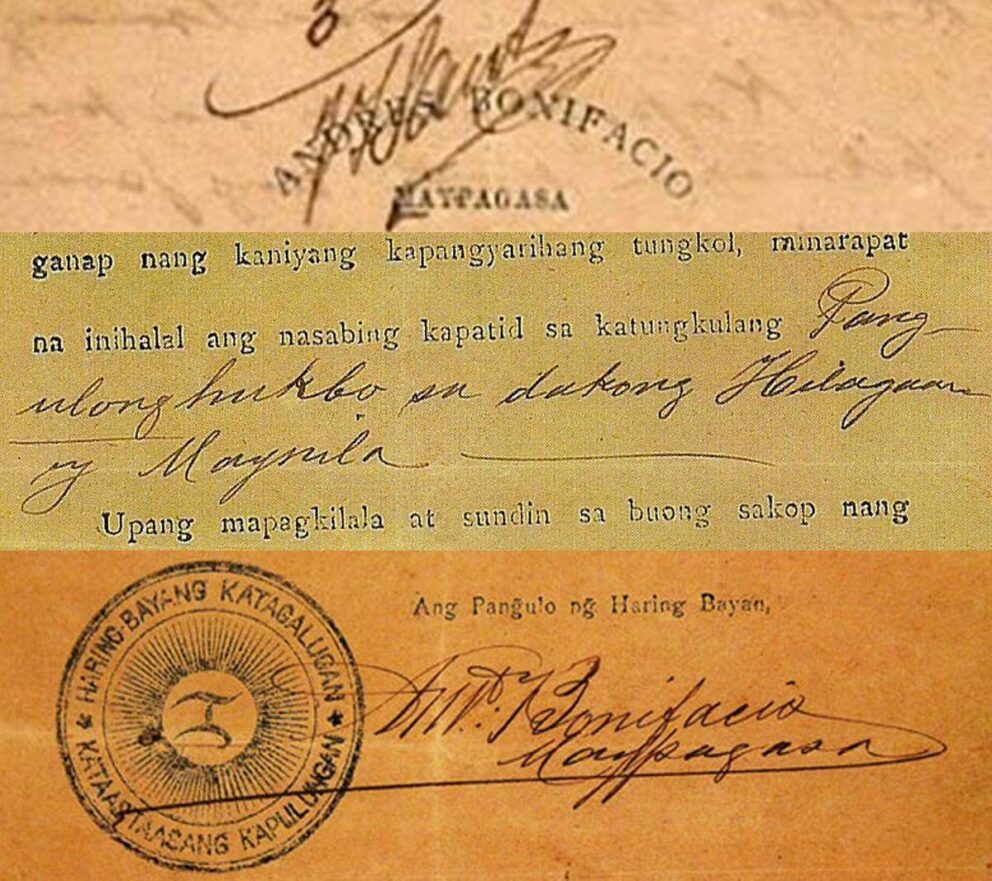 3
ANDRES BONIFACIO
MAYPAGASA
ganap nang kaniyang kapangyarihang tungkol, minarapat
na inihalal ang nasabing kapatid sa katungkulang Pang-
ulong hukbo sa dakong Hilagaan
ng Maynila
Upang mapagkilala at sundin sa buong sakop nang
Ang Pangulo ng̃ Haring Bayan,
HARING-BAYANG KATAGALUGAN
KATAASTAASANG KAPULUNGAN
And. Bonifacio
Maypagasa